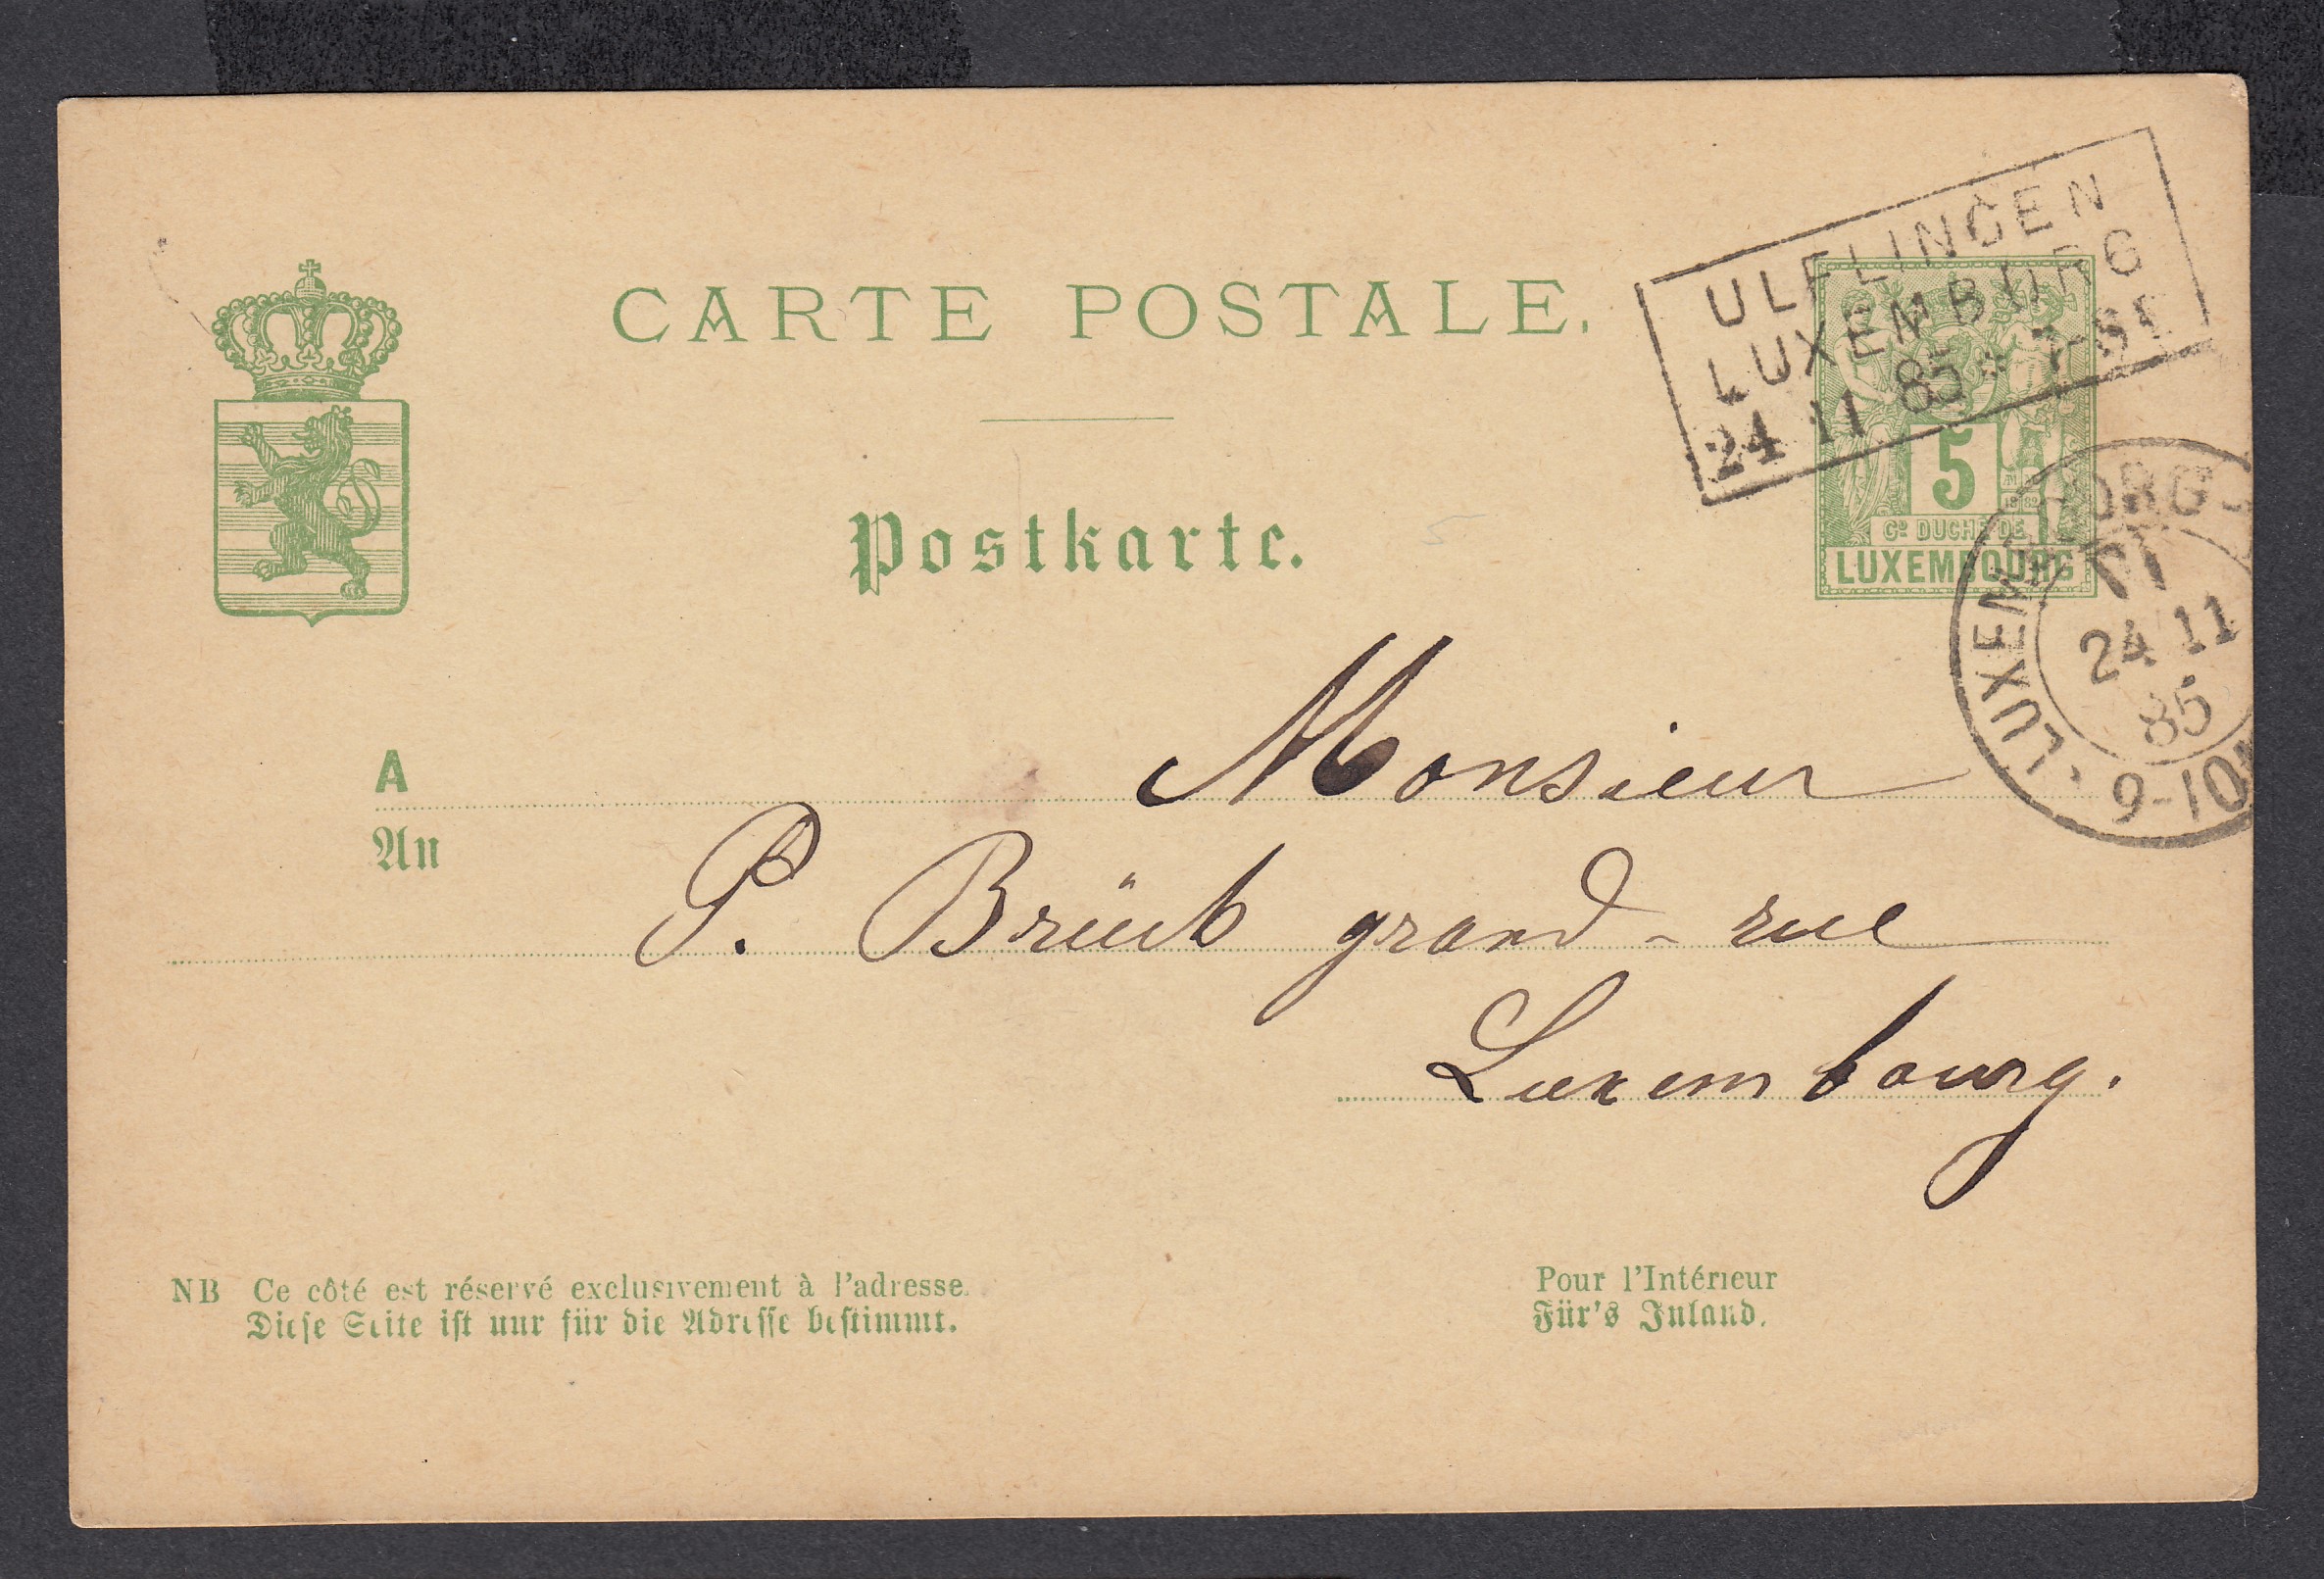 CARTE POSTALE.
Postkarte.
ULFLINGEN
LUXEMBURG
24 11 85
5
Gd DUCHÉ DE
LUXEMBOURG
LUXEMBOURG
24 11
85
9-10
A Monsieur
An
P. Brück grand-rue
Luxembourg.
NB Ce côté est réservé exclusivement à l'adresse.
Diese Seite ist nur für die Adresse bestimmt.
Pour l'Intérieur
Für's Inland.